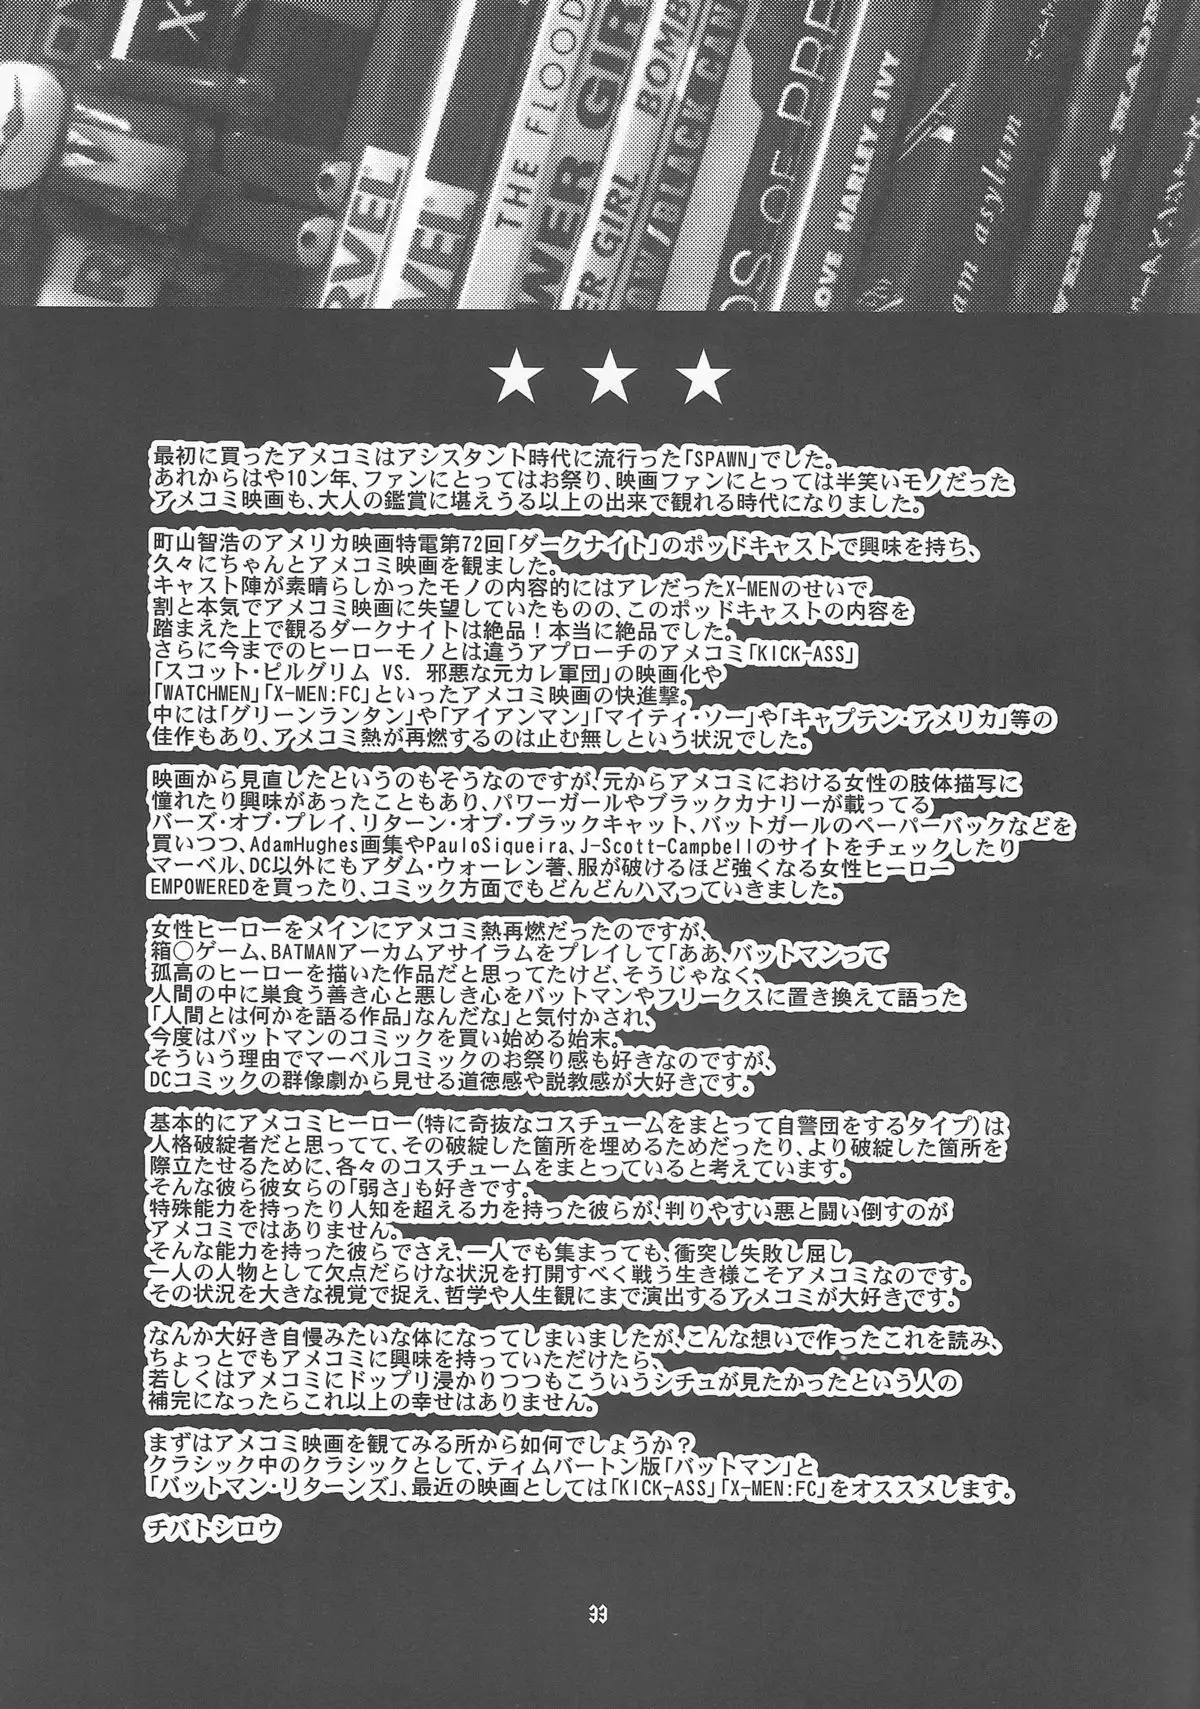 X-
THE FLOOD
WER GIR
ER GIRL BOMB
W/BLACK CAN
DS OF PRE
OVE HARLEY & IVY
am asylum
RVEL
VEL
★ ★ ★
最初に買ったアメコミはアシスタント時代に流行った「SPAWN」でした。
あれからはや10ン年、ファンにとってはお祭り、映画ファンにとっては半笑いモノだった
アメコミ映画も、大人の鑑賞に堪えうる以上の出来で観れる時代になりました。
町山智浩のアメリカ映画特電第72回「ダークナイト」のポッドキャストで興味を持ち、
久々にちゃんとアメコミ映画を観ました。
キャスト陣が素晴らしかったモノの内容的にはアレだったX-MENのせいで
割と本気でアメコミ映画に失望していたものの、このポッドキャストの内容を
踏まえた上で観るダークナイトは絶品！本当に絶品でした。
さらに今までのヒーローモノとは違うアプローチのアメコミ「KICK-ASS」
「スコット・ピルグリム VS. 邪悪な元カレ軍団」の映画化や
「WATCHMEN」「X-MEN:FC」といったアメコミ映画の快進撃。
中には「グリーンランタン」や「アイアンマン」「マイティ・ソー」や「キャプテン・アメリカ」等の
佳作もあり、アメコミ熱が再燃するのは止む無しという状況でした。
映画から見直したというのもそうなのですが、元からアメコミにおける女性の肢体描写に
憧れたり興味があったこともあり、パワーガールやブラックカナリーが載ってる
バーズ・オブ・プレイ、リターン・オブ・ブラックキャット、バットガールのペーパーバックなどを
買いつつ、AdamHughes画集やPauloSiqueira、J-Scott-Campbellのサイトをチェックしたり
マーベル、DC以外にもアダム・ウォーレン著、服が破けるほど強くなる女性ヒーロー
EMPOWEREDを買ったり、コミック方面でもどんどんハマっていきました。
女性ヒーローをメインにアメコミ熱再燃だったのですが、
箱〇ゲーム、BATMANアーカムアサイラムをプレイして「ああ、バットマンって
孤高のヒーローを描いた作品だと思ってたけど、そうじゃなく、
人間の中に巣食う善き心と悪しき心をバットマンやフリークスに置き換えて語った
「人間とは何かを語る作品」なんだな」と気付かされ、
今度はバットマンのコミックを買い始める始末。
そういう理由でマーベルコミックのお祭り感も好きなのですが、
DCコミックの群像劇から見せる道徳感や説教感が大好きです。
基本的にアメコミヒーロー(特に奇抜なコスチュームをまとって自警団をするタイプ)は
人格破綻者だと思ってて、その破綻した箇所を埋めるためだったり、より破綻した箇所を
際立たせるために、各々のコスチュームをまとっていると考えています。
そんな彼ら彼女らの「弱さ」も好きです。
特殊能力を持ったり人知を超える力を持った彼らが、判りやすい悪と闘い倒すのが
アメコミではありません。
そんな能力を持った彼らでさえ、一人でも集まっても、衝突し失敗し屈し
一人の人物として欠点だらけな状況を打開すべく戦う生き様こそアメコミなのです。
その状況を大きな視覚で捉え、哲学や人生観にまで演出するアメコミが大好きです。
なんか大好き自慢みたいな体になってしまいましたが、こんな想いで作ったこれを読み、
ちょっとでもアメコミに興味を持っていただけたら、
若しくはアメコミにドップリ浸かりつつもこういうシチュが見たかったという人の
補完になったらこれ以上の幸せはありません。
まずはアメコミ映画を観てみる所から如何でしょうか？
クラシック中のクラシックとして、ティムバートン版「バットマン」と
「バットマン・リターンズ」、最近の映画としては「KICK-ASS」「X-MEN:FC」をオススメします。
チバトシロウ
33